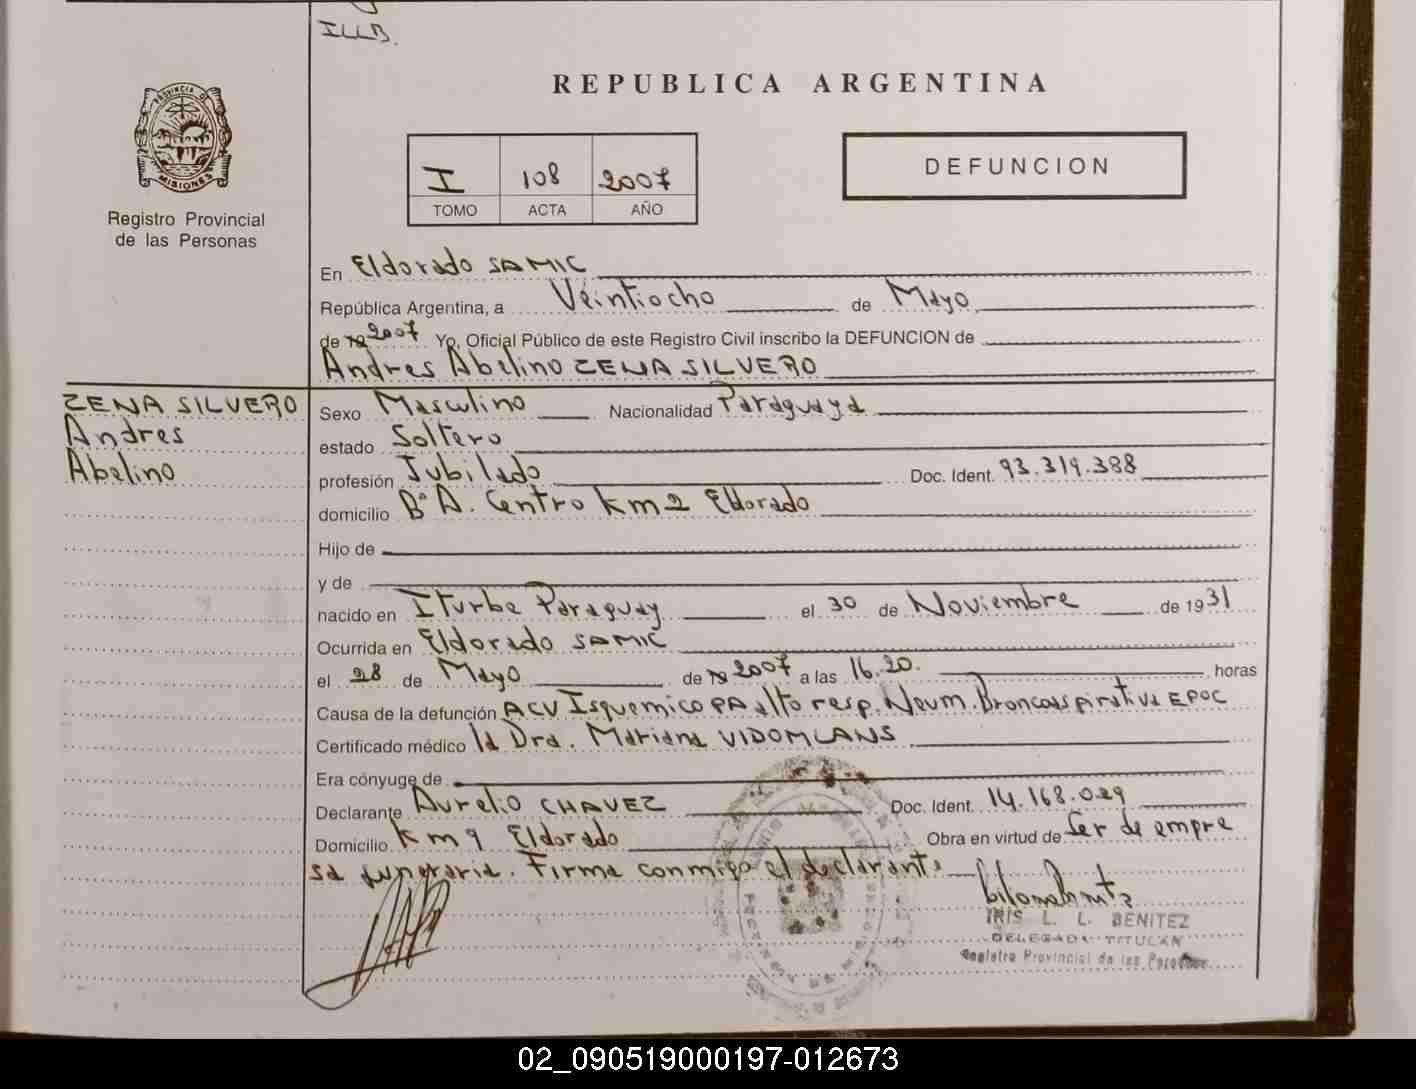 ILLB.
REPUBLICA ARGENTINA
PROVINCIA DE
MISIONES
Registro Provincial
de las Personas
I 108 2007
TOMO ACTA AÑO
DEFUNCION
En Eldorado SAMIC
República Argentina, a Veintiocho de Mayo
de 2007 Yo, Oficial Público de este Registro Civil inscribo la DEFUNCION de
Andres Abelino ZENA SILVERO
ZENA SILVERO
Andres
Abelino
Sexo Masculino Nacionalidad Paraguaya
estado Soltero
profesión Jubilado Doc. Ident. 93.319.388
domicilio Bº A. Centro Km 2 Eldorado
Hijo de
y de
nacido en Iturbe Paraguay el 30 de Noviembre de 1931
Ocurrida en Eldorado SAMIC
el 28 de Mayo de 2007 a las 16.20. horas
Causa de la defunción ACV Isquemico PA alto resp. Neum. Broncoaspirativa EPOC
Certificado médico la Dra. Mariana VIDOMLANS
Era cónyuge de
Declarante Aurelio CHAVEZ Doc. Ident. 14.168.029
Domicilio Km 9 Eldorado Obra en virtud de Ser de empre
sa funeraria. Firma conmigo el declarante
IRIS L. L. BENITEZ
DELEGADA TITULAR
Registro Provincial de las Personas
02_090519000197-012673